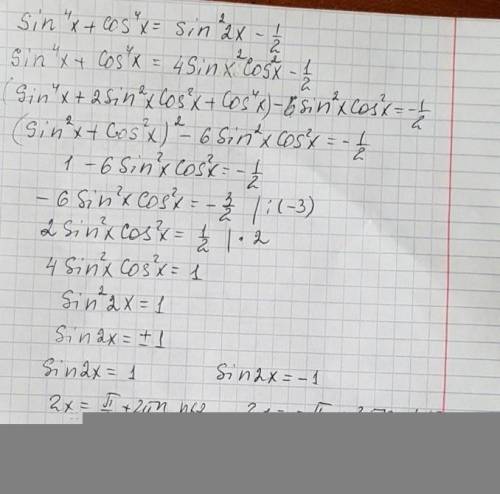 sin⁴x + cos⁴x = sin²2x - 1/2
sin⁴x + cos⁴x = 4sin x² cos²x - 1/2
(sin⁴x + 2sin²x cos²x + cos⁴x) - 6sin²x cos²x = -1/2
(sin²x + cos²x)² - 6sin²x cos²x = -1/2
1 - 6sin²x cos²x = -1/2
- 6sin²x cos²x = -3/2 | : (-3)
2sin²x cos²x = 1/2 | · 2
4sin²x cos²x = 1
sin²2x = 1
sin2x = ±1
sin2x = 1 sin2x = -1
2x = π/2 + 2πn